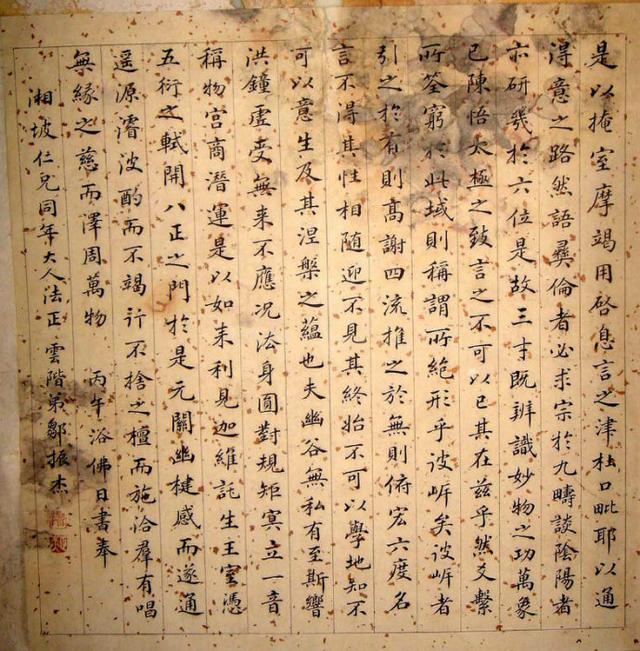 是以掩室摩竭用啓息言之津杜口毗耶以通
得意之路然語彝倫者必求宗於九疇談陰陽者
亦研幾於六位是故三才既辨識妙物之功萬象
已陳悟太極之致言之不可以已其在茲乎然爻繫
所筌窮於此域則稱謂所絕形乎彼岸矣彼岸者
引之於有則高謝四流推之於無則俯宏六度名
言不得其性相隨迎不見其終始不可以學地知不
可以意生及其涅槃之蘊也夫幽谷無私有至斯響
洪鐘虛受無来不應况法身圓對規矩冥立一音
稱物宮商潛運是以如来利見迦維託生王室憑
五衍之軾開八正之門於是元關幽楗感而遂通
遥源濬波酌而不竭行不捨之檀而施洽羣有唱
無緣之慈而澤周萬物 丙午浴佛日書奉
湘坡仁兄同年大人法正 雲階弟鄒振杰